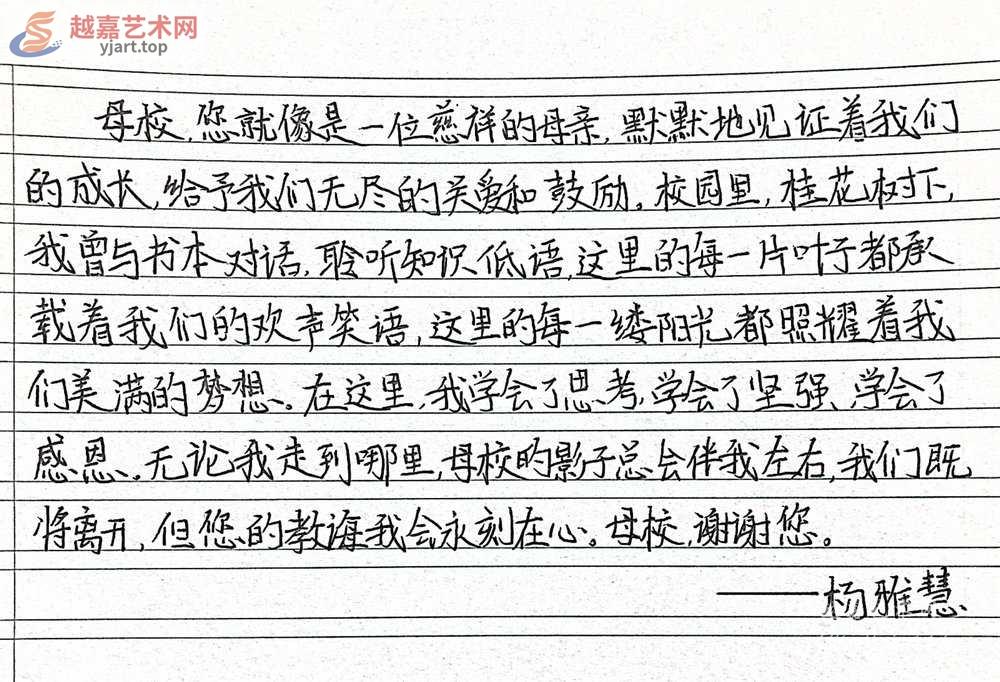 越嘉艺术网
yjart.top
母校,您就像是一位慈祥的母亲,默默地见证着我们
的成长,给予我们无尽的关爱和鼓励。校园里,桂花树下,
我曾与书本对话,聆听知识低语,这里的每一片叶子都承
载着我们的欢声笑语,这里的每一缕阳光都照耀着我
们美满的梦想。在这里,我学会了思考,学会了坚强、学会了
感恩。无论我走到哪里,母校的影子总会伴我左右,我们既
将离开,但您的教诲我会永刻在心。母校,谢谢您。
——杨雅慧